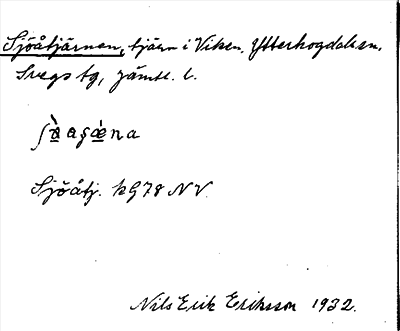 Sjöåtjärnen, tjärn i Viken, Ytterhogdals sn,
Svegs tg, Jämtl. l.
Sjöåtj. kg 78 NV.
Nils Erik Eriksson 1932.